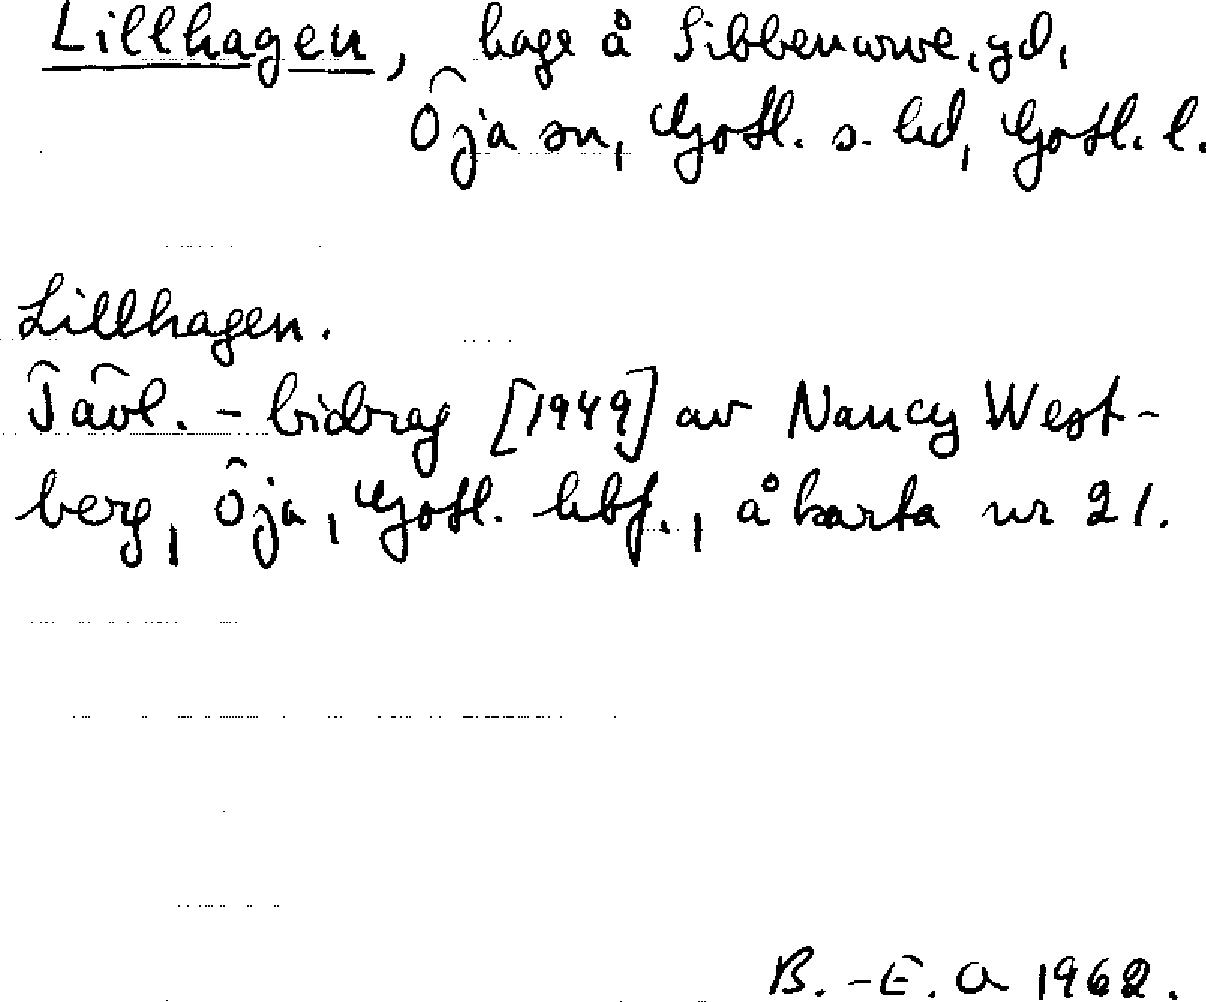 Lillhagen, hage å Sibbenarve, gd,
Öja sn, Gotl. s. hd, Gotl. l.
Lillhagen.
Tävl. - bidrag [1949] av Nancy West-
berg, Öja, Gotl. hbf., å karta nr 21.
B.-E. A 1962.